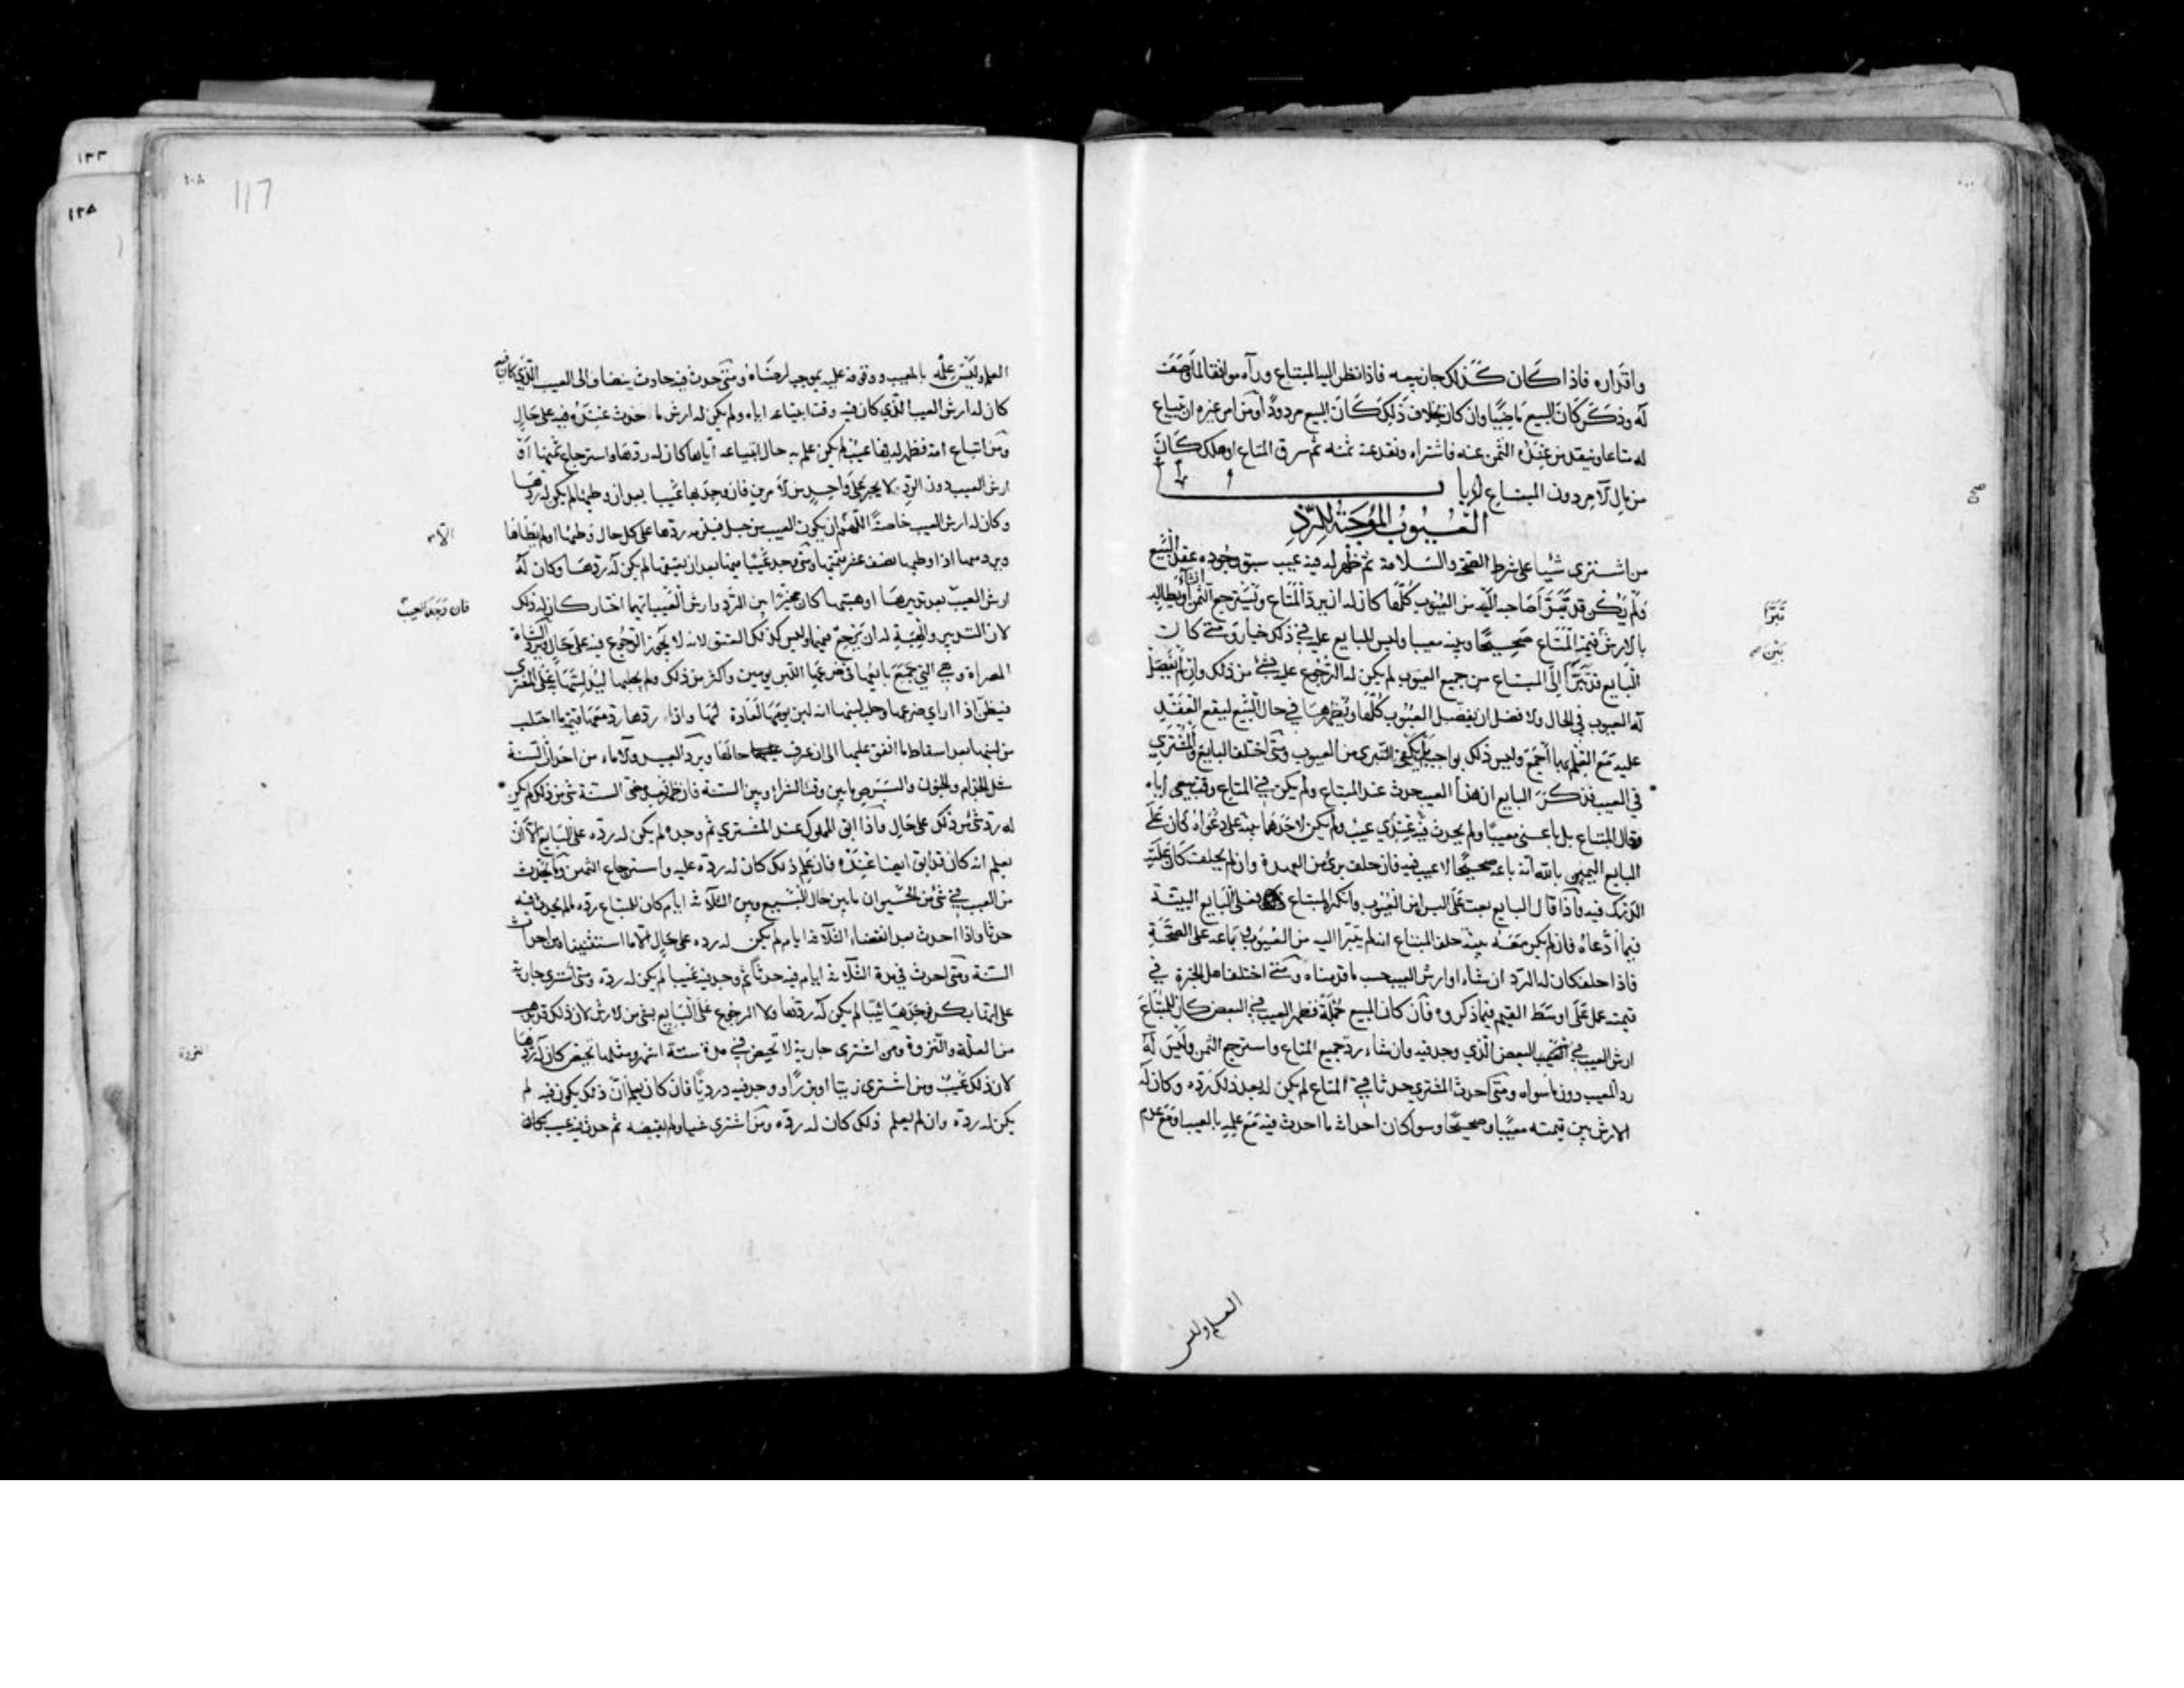 واقداره فاذا كان كذلك جاز بيعه فاذا نظر اليه المبتاع ورآه موافقا لما وصف
له وذكر كان البيع ماضيا وان كان بخلاف ذلك كان البيع مردودا ومن امر غيره ان يبتاع
له متاعا وينقد من عنده الثمن عنه فاشتراه ونقد عنه ثمنه ثم سرق المتاع او هلك كان
من مال الآمر دون المبتاع
العيوب الموجبة للرد
من اشترى شيئا على شرط الصحة والسلامة ثم ظهر له فيه عيب سبق وجوده عقد البيع
ولم يكن قد تبرأ صاحبه اليه من العيوب كلها كان له ان يرد المتاع ويسترجع الثمن او يطالبه
تبرأ
بالارش قيمة المتاع صحيحا وبينه معيبا وليس للبايع عليه في ذلك خيار ومتى كان
بين
البايع قد تبرأ الى المبتاع من جميع العيوب لم يكن له الرجوع عليه بشئ من ذلك وان لم يفصل
له العيوب في الحال والافضل ان يفصل العيوب كلها ويظهرها في حال البيع ليقع العقد
عليه مع العلم بها اجمع وليس ذلك بواجب بل يكفي التبري من العيوب ومتى اختلف البايع والمشتري
في العيب فذكر البايع ان هذا العيب حدث عند المبتاع ولم يكن في المتاع وقت بيعي اياه
وقال المبتاع بل باعني معيبا ولم يحدث فيه عندي عيب ولم يكن لاحدهما بينة على دعواه كان على
البايع اليمين بالله انه باعه صحيحا لا عيب فيه فان حلف برئ من العهدة وان لم يحلف كان عليه
الدرك فيه واذا قال البايع بعت على البراءة من العيوب وانكر المبتاع فعلى البايع البينة
فيما ادعاه فان لم يكن معه بينة حلف المبتاع انه لم يتبرأ اليه من العيوب وباعه على الصحة
فاذا حلف كان له الرد ان شاء او ارش العيب حسب ما قدمناه ومتى اختلف اهل الخبرة في
قيمته عمل على اوسط القيم فيما ذكروه فان كان المبيع جملة فظهر العيب في البعض كان للمبتاع
ارش العيب في البعض الذي وجد فيه وان شاء رد جميع المتاع واسترجع الثمن وليس له
رد المعيب دون ما سواه ومتى احدث المشتري حدثا في المتاع لم يكن له بعد ذلك رده وكان له
الارش بين قيمته معيبا وصحيحا وسوا كان احداثه ما احدث فيه مع علمه بالعيب او مع عدم
العلم وليس
117
العلم وليس علمه بالعيب ووقوفه عليه بموجب لرضاه ومتى حدث فيه حادث ينضاف الى العيب الذي كان فيه
كان له ارش العيب الذي كان فيه وقت ابتياعه اياه ولم يكن له ارش ما حدث عنده فيه على حال
ومن ابتاع امة فظهر له فيها عيب لم يكن علم به حال ابتياعه اياها كان له ردها واسترجاع ثمنها او
ارش العيب دون الرد لا يجبر على واحد من الامرين فان وجد بها عيبا بعد ان وطئها لم يكن له ردها
وكان له ارش العيب خاصة اللهم ان يكون العيب من حبل فيلزمه ردها على كل حال وطئها او لم يطأها
ويرد معها اذا وطئها نصف عشر قيمتها ومتى وجد عيبا فيها بعد ان يعتقها لم يكن له ردها وكان له
ارش العيب بعد تدبيرها او هبتها كان مخيرا بين الرد وارش العيب ايهما اختار كان له ذلك
فان وجد العيب
لان التدبير والهبة له ان يرجع فيهما وليس كذلك العتق لانه لا يجوز الرجوع فيه على حال وترد الشاة
المصراة وهي التي جمع بايعها في ضرعها اللبن يومين واكثر من ذلك ولم يحلبها ليدلسها على المشتري
فيظن اذا راى ضرعها وحلب لبنها انه لبن يومها لعادة لها واذا ردها رد معها قيمة ما احتلب
من لبنها بعد اسقاط ما انفق عليها الى ان عرف حالها ويرد العبيد والاماء من احداث السنة
مثل الجذام والجنون والبرص ما بين وقت الشراء وبين السنة فان ظهر بعد مضي السنة شئ من ذلك لم يكن
له رد شئ من ذلك على حال واذا ابق المملوك عند المشتري ثم وجده لم يكن له رده على البايع الا ان
يعلم انه كان قد ابق ايضا عنده فان علم ذلك كان له رده عليه واسترجاع الثمن وما يحدث
من العيب في شئ من الحيوان ما بين حال البيع وبين الثلاثة ايام كان للمبتاع رده ما لم يحدث فيه
حدثا واذا احدث بعد انقضاء الثلاثة ايام لم يكن له رده على حال الا ما استثنيناه من احداث
السنة ومتى احدث في مدة الثلاثة ايام فيه حدثا ثم وجد فيه عيبا لم يكن له رده ومتى اشترى جارية
على انها بكر فوجدها ثيبا لم يكن له ردها ولا الرجوع على البايع بشئ من الارش لان ذلك قد يذهب
من العلة والنزوة ومن اشترى جارية لا تحيض في مدة ستة اشهر ومثلها تحيض كان له ردها
لان ذلك عيب ومن اشترى زيتا او بزرا ووجد فيه درديا فان كان يعلم ان ذلك يكون فيه لم
يكن له رده وان لم يعلم ذلك كان له رده ومن اشترى شيئا ولم يقبضه ثم حدث فيه عيب كان